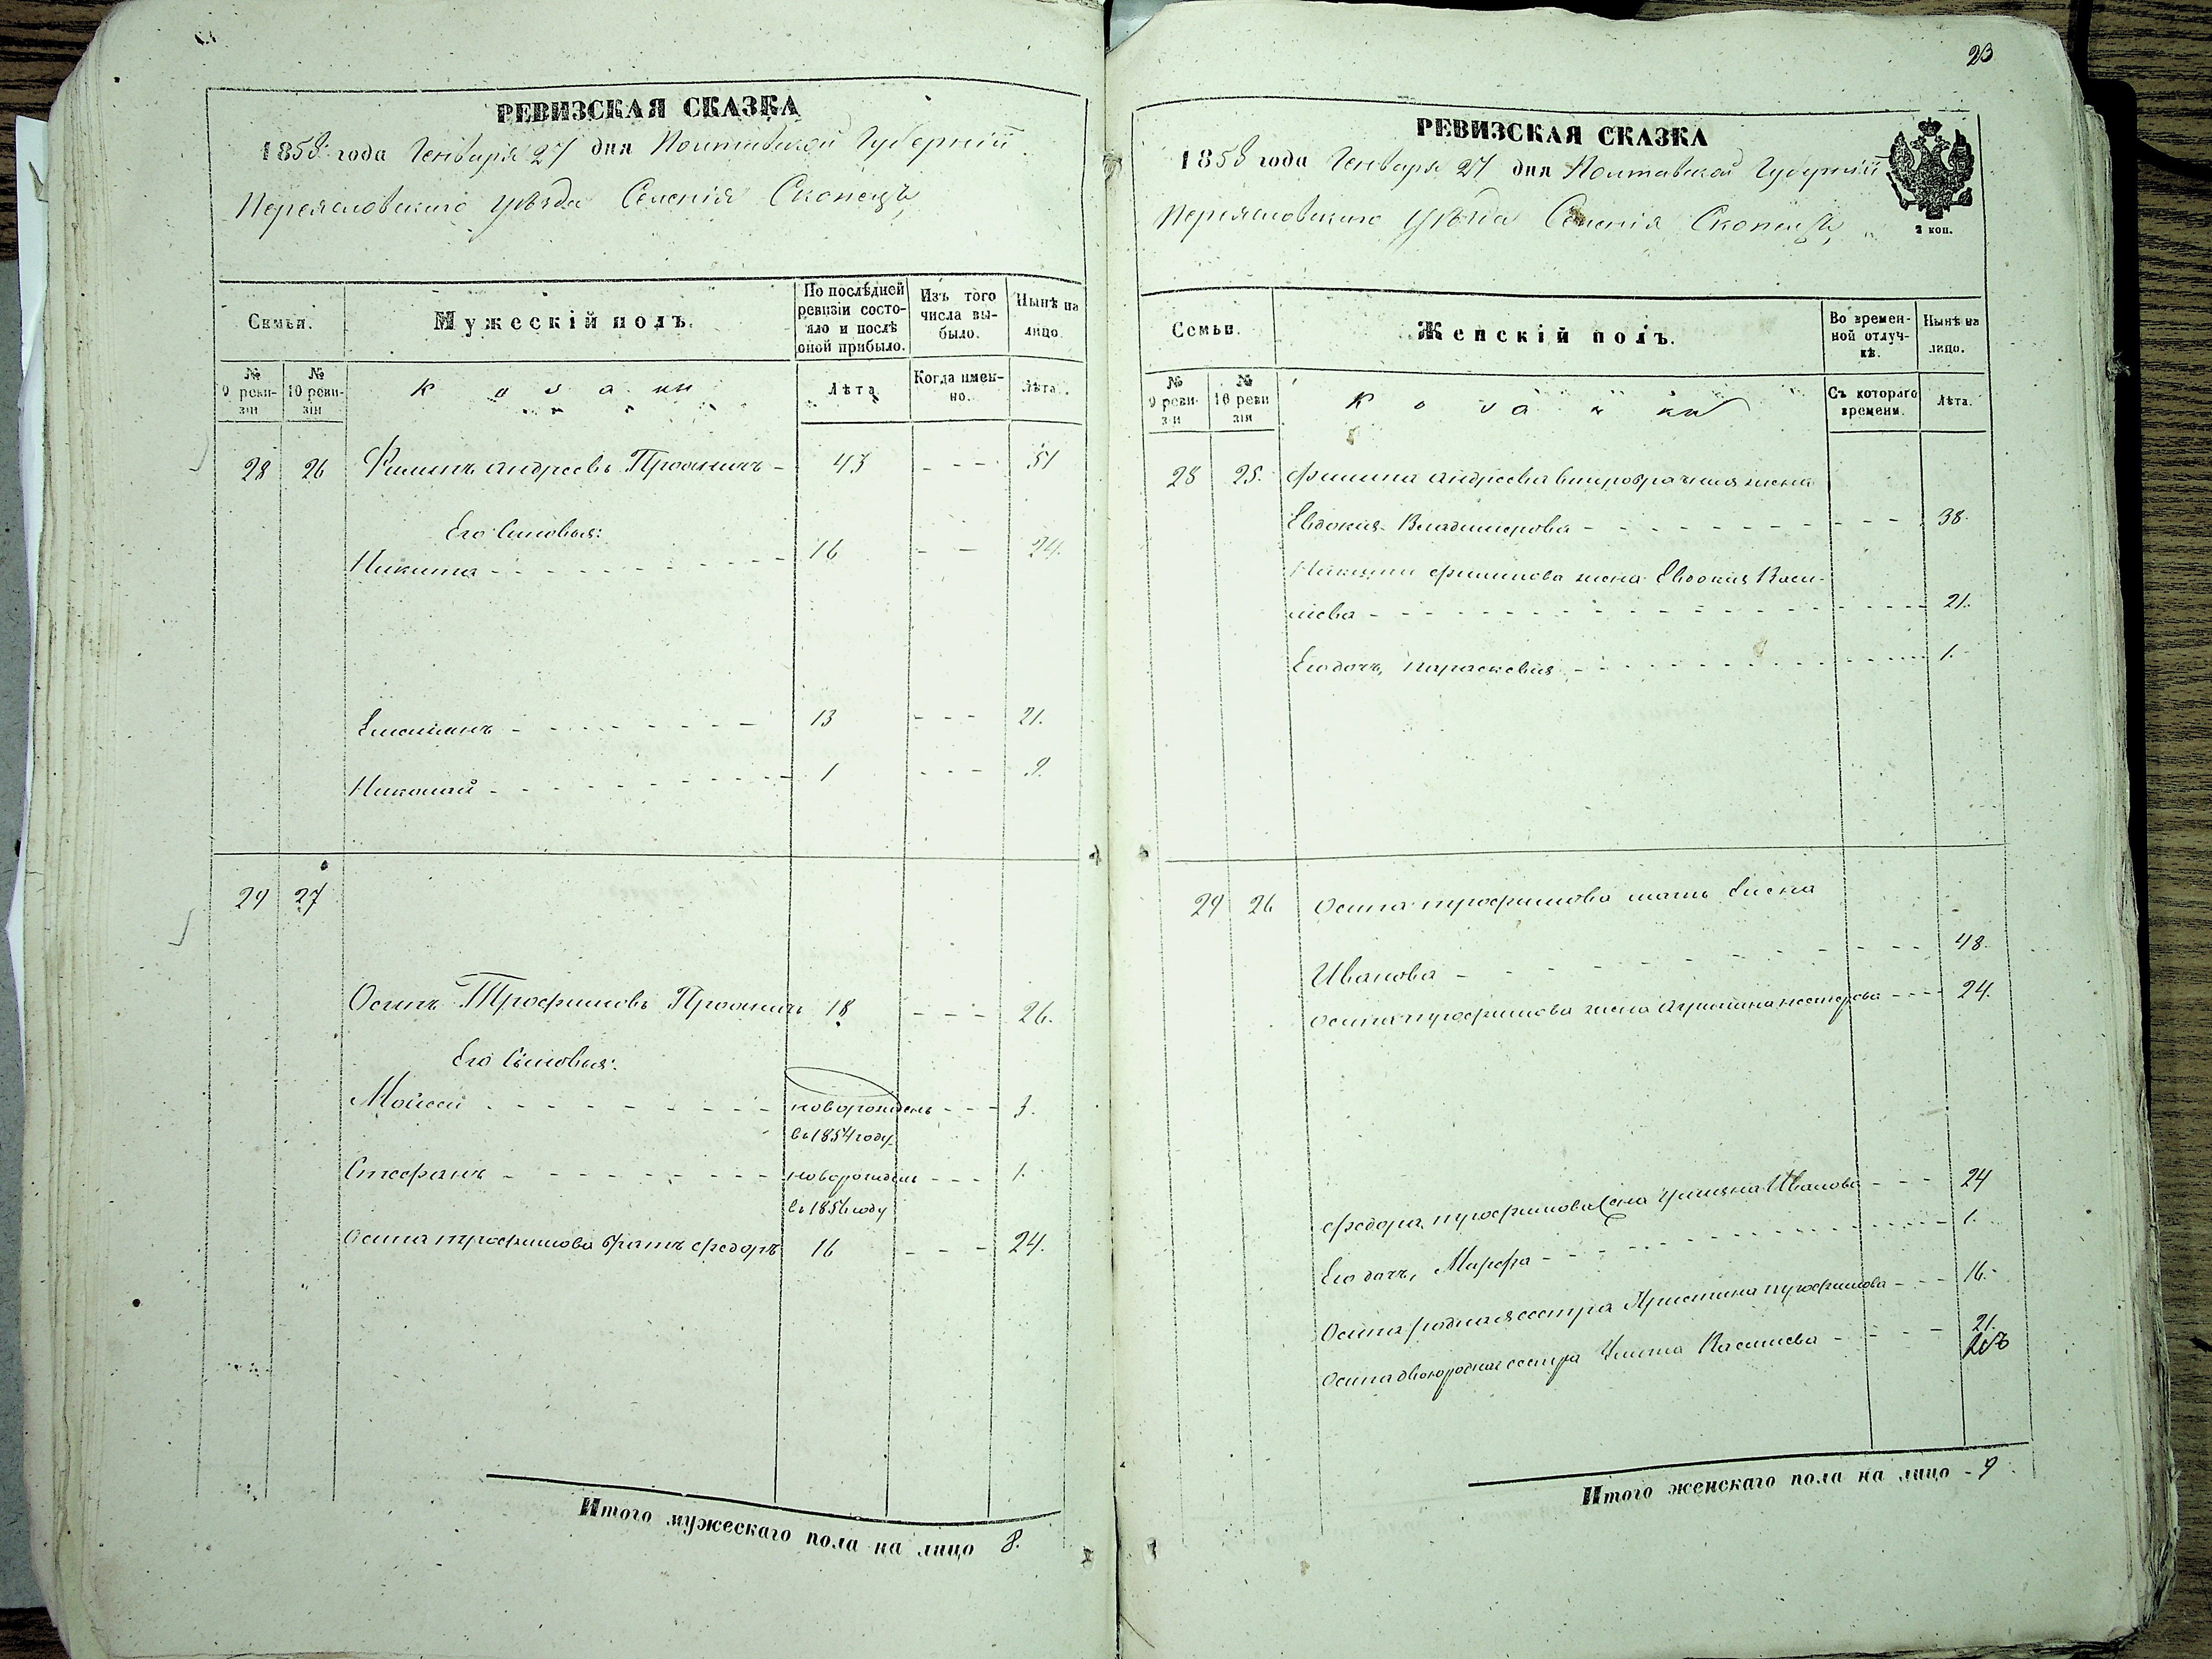 РЕВИЗСКАЯ СКАЗКА
1858 года Генваря 27 дня Полтавской Губерніи
Переясловскаго уѣзда Селенія Скопецъ
Семьи.
Мужескій полъ.
По послѣдней ревизіи состояло и послѣ оной прибыло.
Изъ того числа выбыло.
Нынѣ на лицо
№ 9 ревизіи
№ 10 ревизіи
Козаки
Лѣта
Когда именно.
Лѣта.
28 26 Филипъ Андреевъ Проаничъ - 43 - - - 51
Его Сыновья:
Никита - - - 16 - - 24.
Емельянъ - - - 13 - - - 21.
Николай - - - 1 - - - 9.
29 27
Осипъ Трофимовъ Проаничъ 18 - - - 26.
Его Сыновья:
Мойсей - - - новорожденъ - - - 3.
въ 1854 году
Стефанъ - - - новорожденъ - - - 1.
въ 1856 году
Осипа трофимова братъ федоръ 16 - - - 24.
Итого мужескаго пола на лицо 8.
23
РЕВИЗСКАЯ СКАЗКА
1858 года Генваря 27 дня Полтавской Губерніи
Переясловскаго уѣзда Селенія Скопецъ
2 коп.
Семьи.
Женскій полъ.
Во временной отлучкѣ.
Нынѣ на лицо.
№ 9 ревизіи
№ 10 ревизія
Козачки
Съ котораго времени.
Лѣта.
28 25. филипа андреева второбрачная жена
Евдокия Владимерова - - - 38.
Никиты филипова жена Евдокия Васи-
лиева - - - 21.
Его дочь, параскевия - - - 1.
29 26 Осипа трофимова мать Елена
Иванова - - - 48.
осипа трофимова жена Агрипина нестерова - - - 24.
федора трофимова жена Улияна Иванова - - - 24
Его дочь, Марфа - - - 1.
Осипа родная сестра Христина трофимова - - - 16.
Осипа двоюродная сестра Улита Василиева - - - 21.
Итого женскаго пола на лицо - 9.